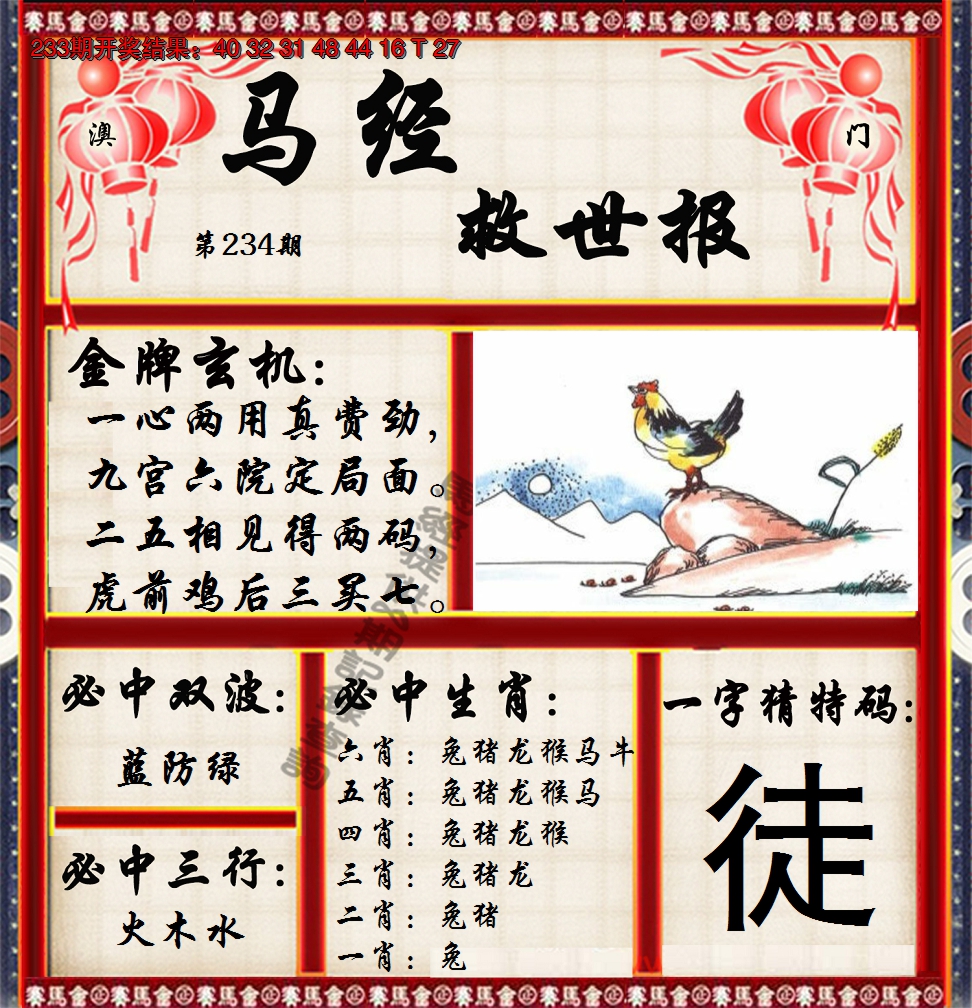 233期开奖结果：40 32 31 48 44 16 T 27
澳
门
马经
救世报
第234期
金牌玄机：
一心两用真费劲，
九宫六院定局面。
二五相见得两码，
虎前鸡后三买七。
必中双波：
蓝防绿
必中三行：
火木水
必中生肖：
六肖：兔猪龙猴马牛
五肖：兔猪龙猴马
四肖：兔猪龙猴
三肖：兔猪龙
二肖：兔猪
一肖：兔
一字猜特码：
徒